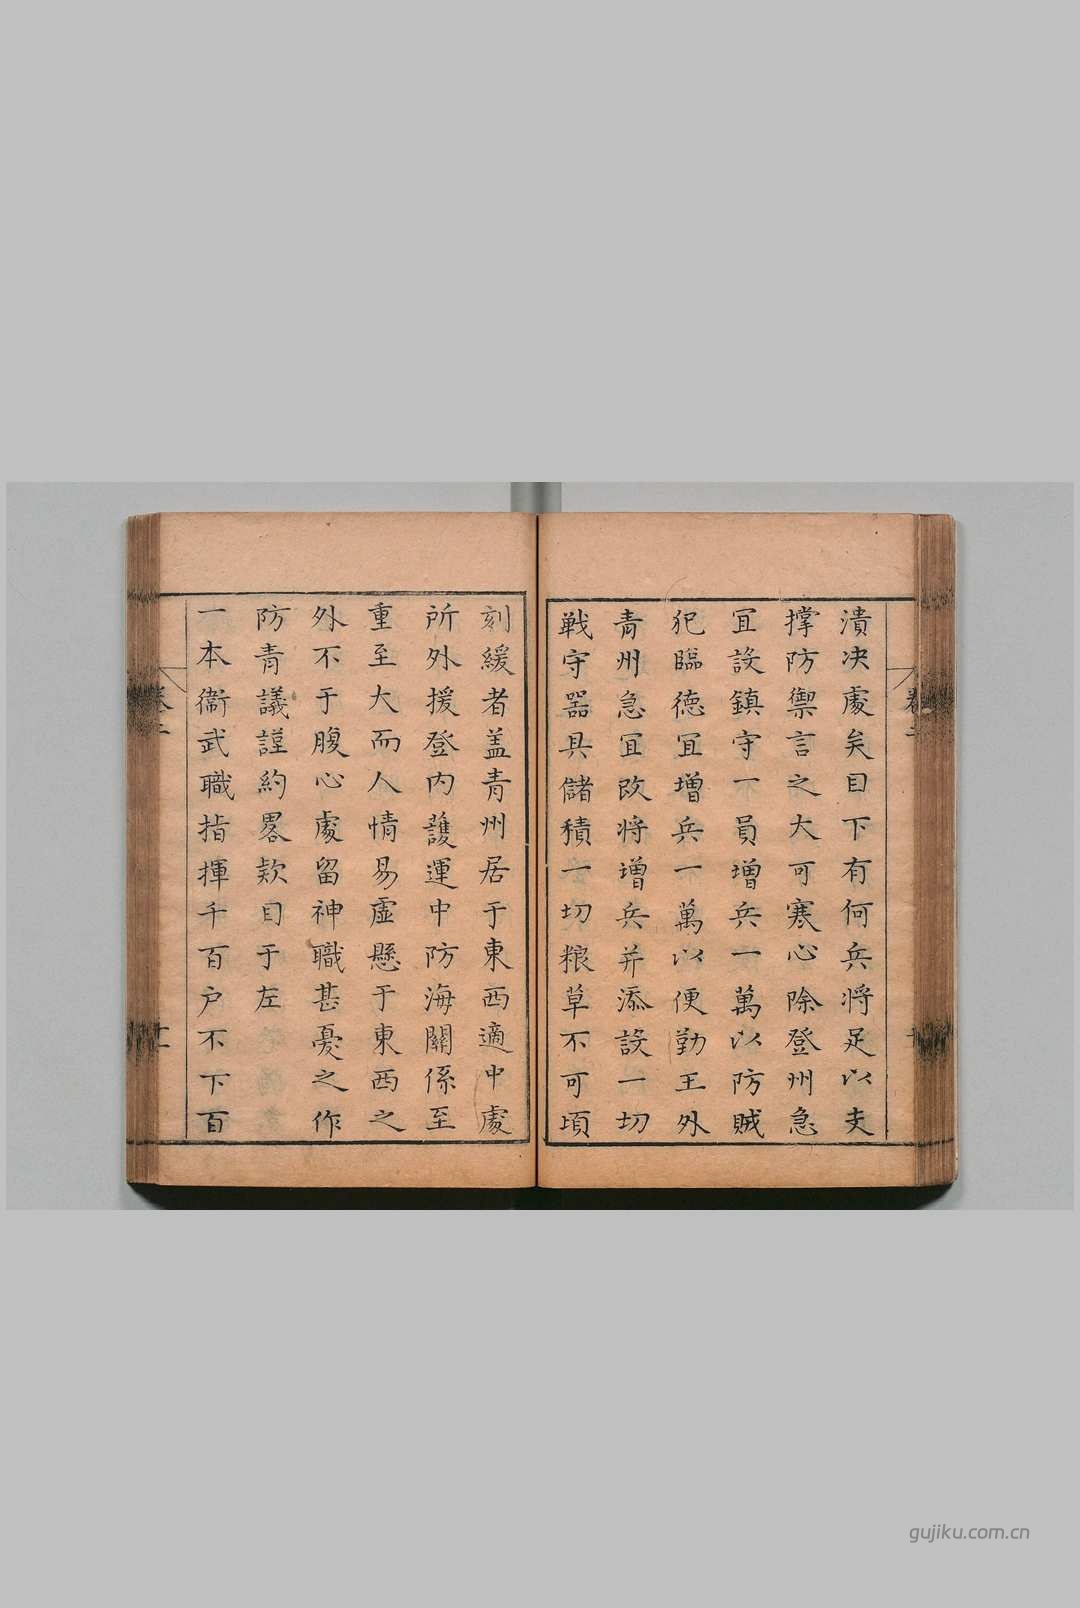 潰决處矣目下有何兵將足以支
撑防禦言之大可寒心除登州急
宜設鎮守一員增兵一萬以防賊
犯臨德宜增兵一萬以便勤王外
青州急宜改將增兵并添設一切
戰守器具儲積一切粮草不可頃
刻緩者盖青州居于東西適中處
所外援登內護運中防海關係至
重至大而人情易虛懸于東西之
外不于腹心處留神職甚憂之作
防青議謹約畧欵目于左
一本衛武職指揮千百户不下百
卷二
gujiku.com.cn